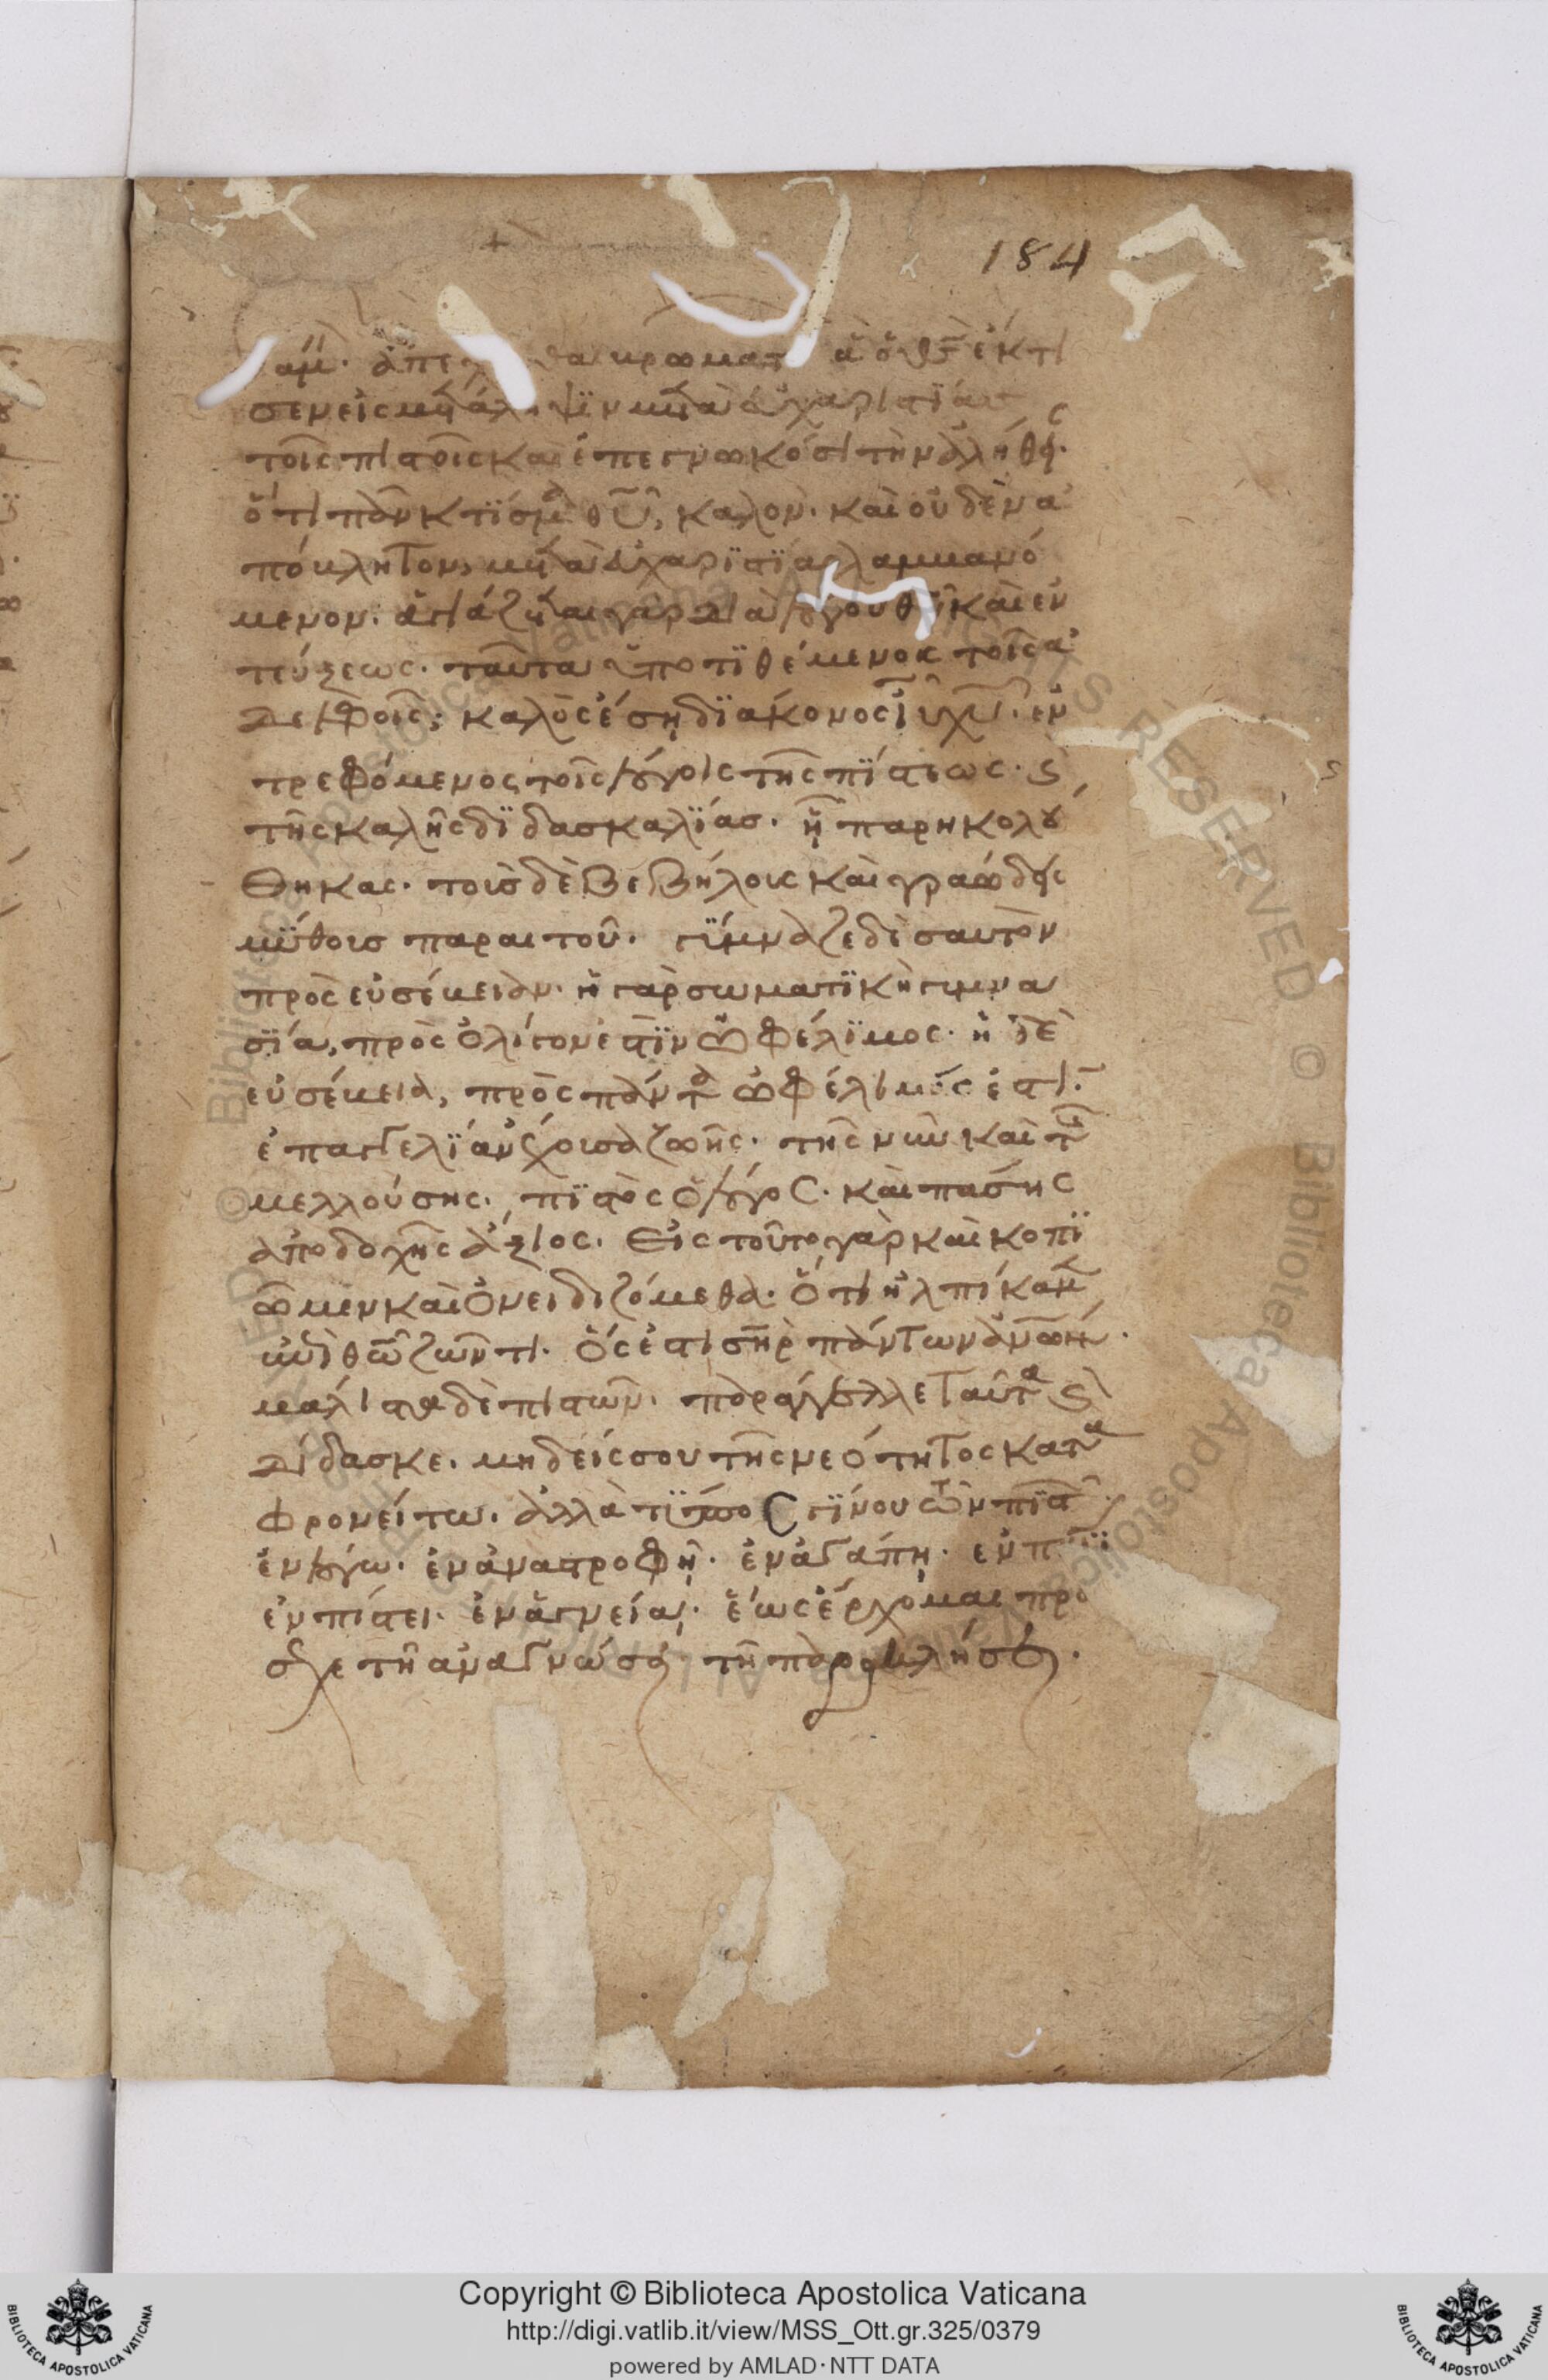 184
αμ̅. ἀπε θαι βρωματ ἃ ὁ θς̅ ἔκτι
σεν εἰς μετάλ ψϊν μετὰ εὐχαριστΐας
τοῖς πιστοῖς καὶ ἐπεγνωκόσι τὴν ἀλήθει.
ὅτι πᾶν κτΐσμα θυ̅, καλὸν. καὶ οὐδὲν α
πόβλητον, μετὰ εὐχαρϊστΐας λαμβανό
μενον. ἁγιάζεται γὰρ διὰ λόγου θυ̅ καὶ ἐν
τεύξεως. ταῦτα ὑποτϊθέμενος τοῖς ἀ
δελφοῖς, καλὸς ἔση δϊάκονος ιυ̅ χυ̅. ἐν
τρεφόμενος τοῖς λόγοις τῆς πΐστεως. ϛ
τῆς καλῆς δϊδασκαλΐας. ἧ παρηκολȣ
θηκας. τοὶς δὲ βεβήλοις καὶ γραώδεις
μϋθοις παραιτοῦ. γΰμναζε δὲ σαυτὸν
πρὸς εὐσέβειαν. ἡ γὰρ σωματϊκὴ γυμνα
σΐα, πρὸς ὀλίγον ἐστϊν ὠφέλϊμος. ἡ δὲ
εὐσέβεια, πρὸς πάντα ὠφέλιμός ἐστι.
ἐπαγγελΐαν ἔχουσα ζωῆς. τῆς νῦν καὶ τῆς
μελλούσης. πϊστὸς ὁ λόγος. καὶ πάσης
ἀποδοχῆς ἄξιος. Εἰς τοῦτο γὰρ καὶ κοπϊ
ῶμεν καὶ ὀνειδιζόμεθα. ὅτι ἠλπίκαμεν
ἐπὶ θω̅ ζῶντι. ὅς ἐστι σηρ̅ πάντων ἀνων̅.
μάλιστα δὲ πιστῶν. παράγγελλε ταῦτα ϛ
δίδασκε. μηδείς σου τῆς νεότητος κατα
φρονείτω. ἀλλὰ τΰπος γΐνου τῶν πϊστ
ἐν λόγω. ἐν ἀναστροφῆ. ἐν ἀγάπη. ἐν πνϊ̅
ἐν πίστει. ἐν ἁγνεία. ἕως ἔρχομαι πρό
σχε τῆ ἀναγνώσει τῆ παρακλήσει.
Copyright © Biblioteca Apostolica Vaticana
http://digi.vatlib.it/view/MSS_Ott.gr.325/0379
powered by AMLAD·NTT DATA
BIBLIOTECA APOSTOLICA VATICANA
BIBLIOTECA APOSTOLICA VATICANA